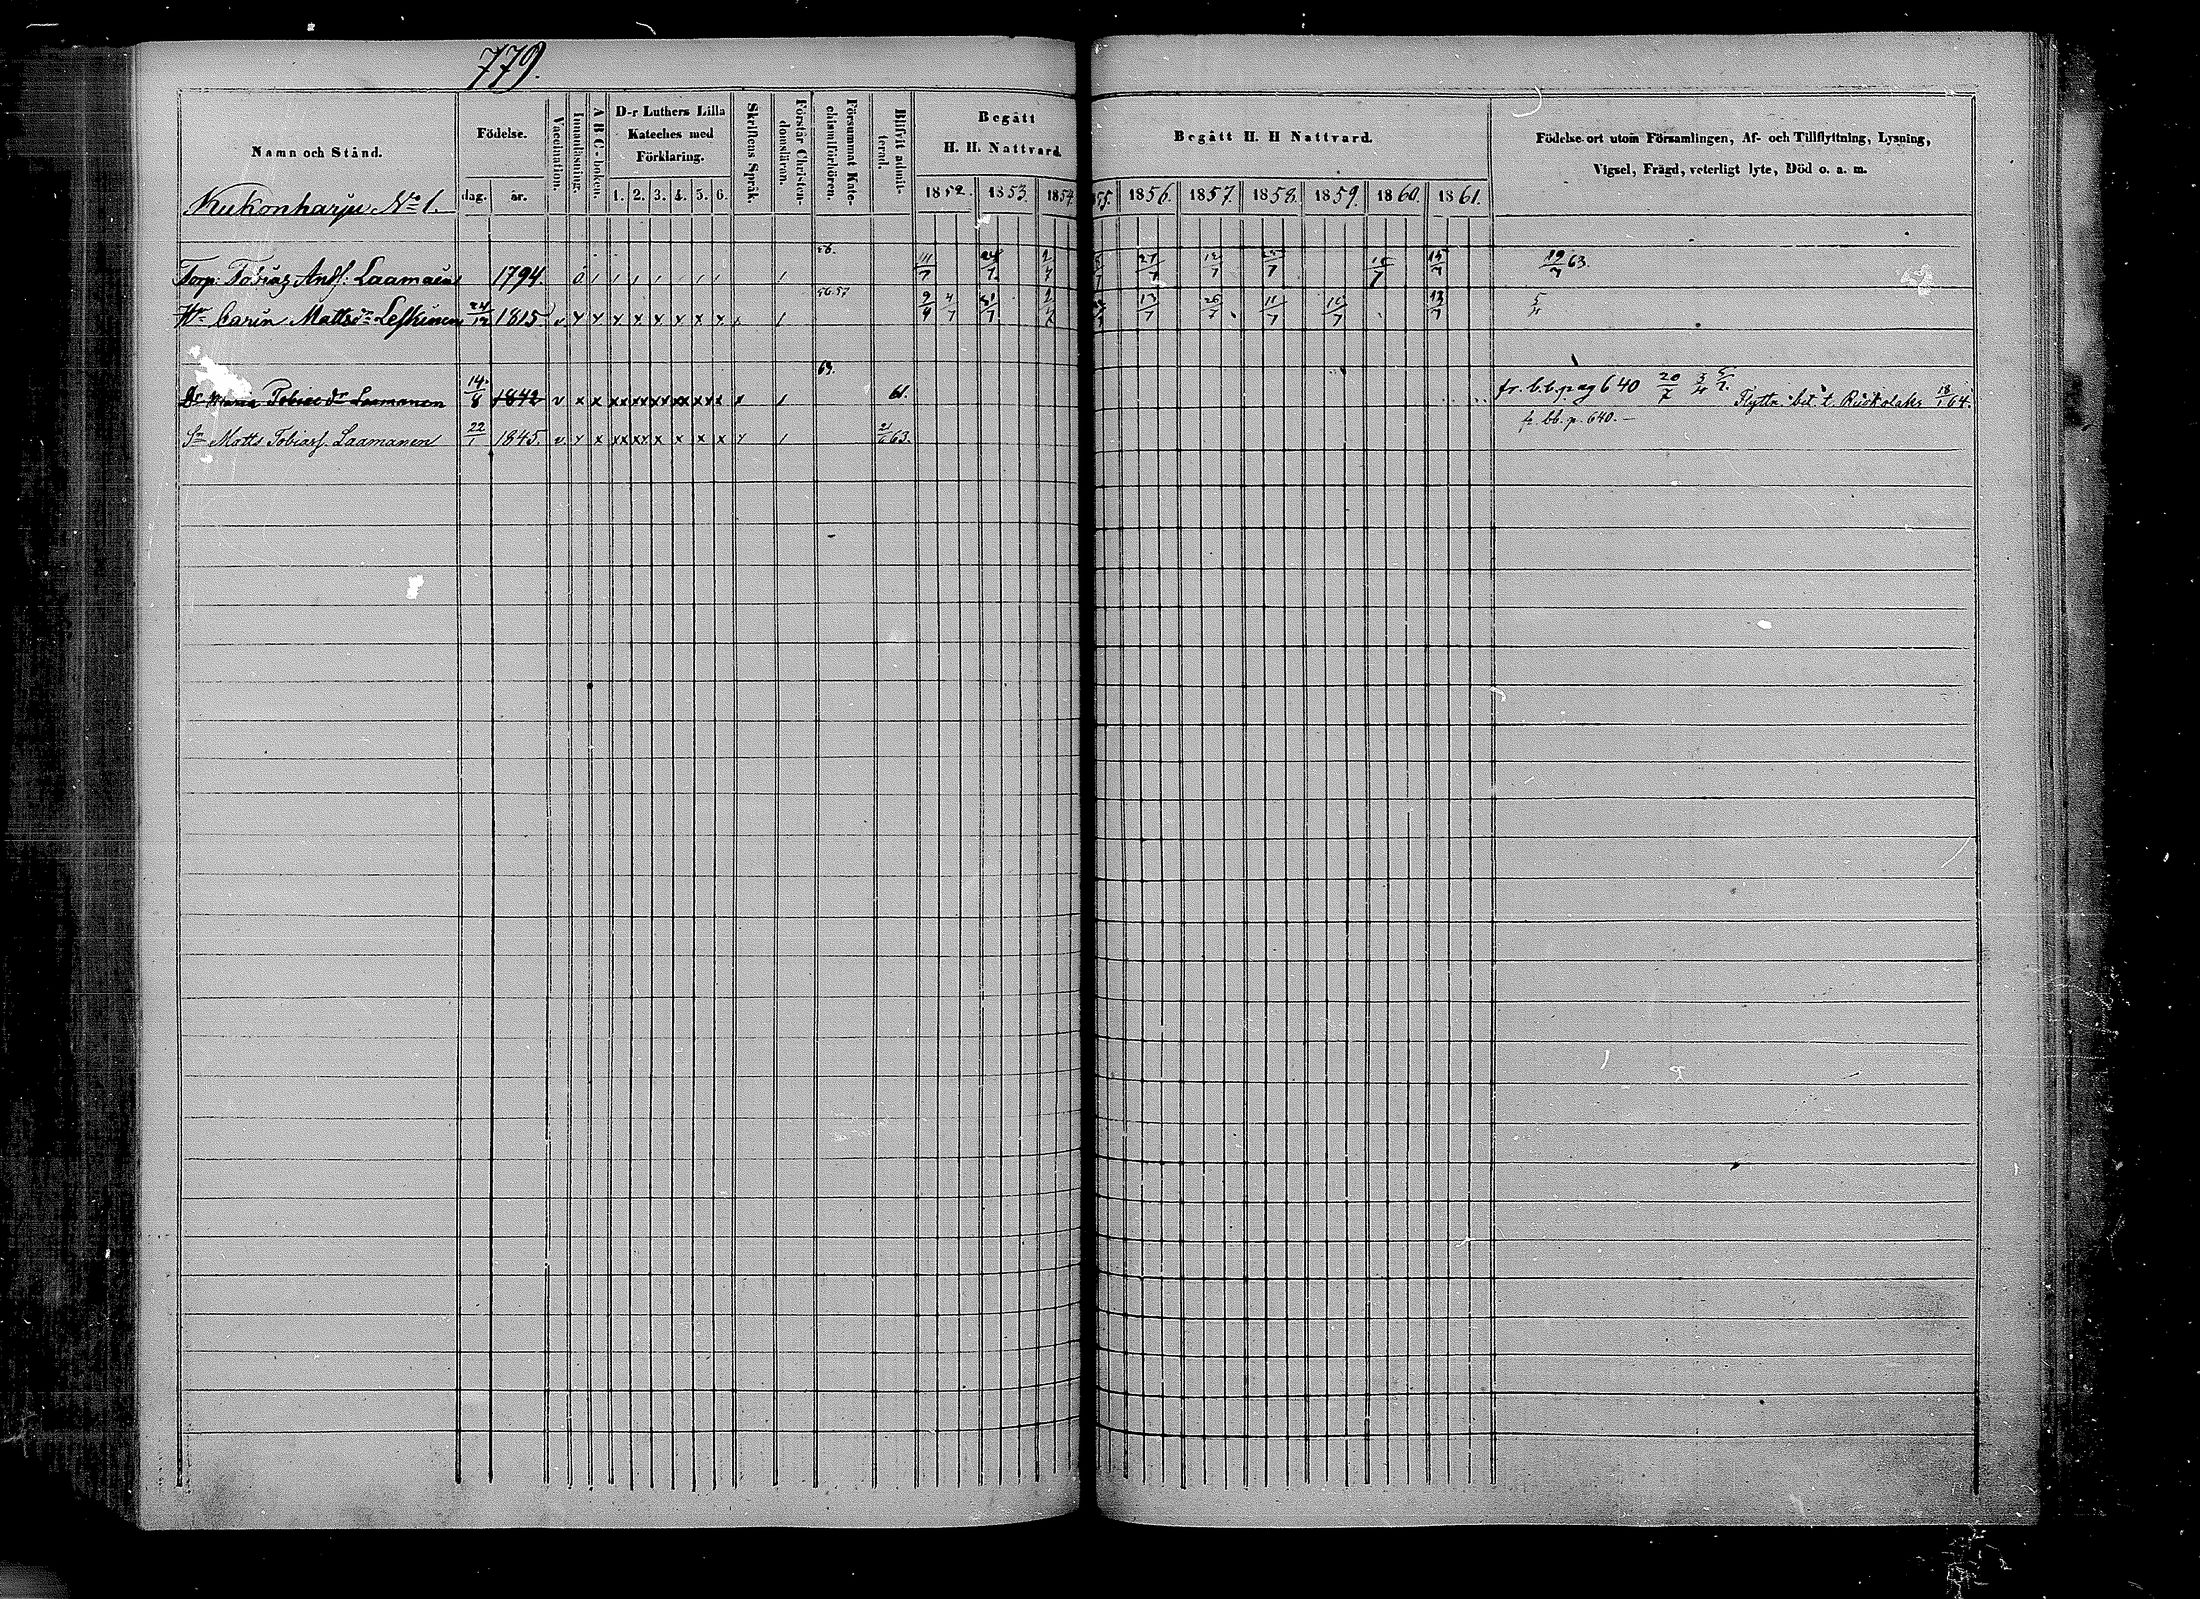 779.
Namn och Stånd.
Födelse.
dag.
år.
Vaccination.
Innanläsning.
A B C-boken.
D-r Luthers Lilla
Kateches med
Förklaring.
1. 2. 3. 4. 5. 6.
Skriftens Språk.
Förstår Christen-
domsläran.
Försummat Kate-
chismiförhören.
Blifvit admit-
terad.
Begått
H. H. Nattvard.
1852. 1853. 1854.
Begått H. H Nattvard.
55. 1856. 1857. 1858. 1859. 1860. 1861.
Födelse-ort utom Församlingen, Af- och Tillflyttning, Lysning,
Vigsel, Frägd, veterligt lyte, Död o. a. m.
Kukonharju No 1.
56.
Torp. Tobias Andf. Laamanen 1794. 11/7 24/7 2/7 27/7 12/7 25/7 15/7 19/7 63.
56.57
Hu Carin Mattsdr Leskinen 24/12 1815 v x x x x x x x x 9/4 4/7 31/7 2/7 13/7 26/7 11/7 13/7 5/4
63.
Dr Maria Tobiae dr Laamanen 14/8 1842 v x x xx xx xx xx xx x x 61. fr. b.b. pag 640 20/7 Flytta. bet. t. Ruskolaks 18/1 64.
Sn Matts Tobiasf. Laamanen 22/1 1845. v x x xx xx x x x x 63. fr. bb. p. 640.—